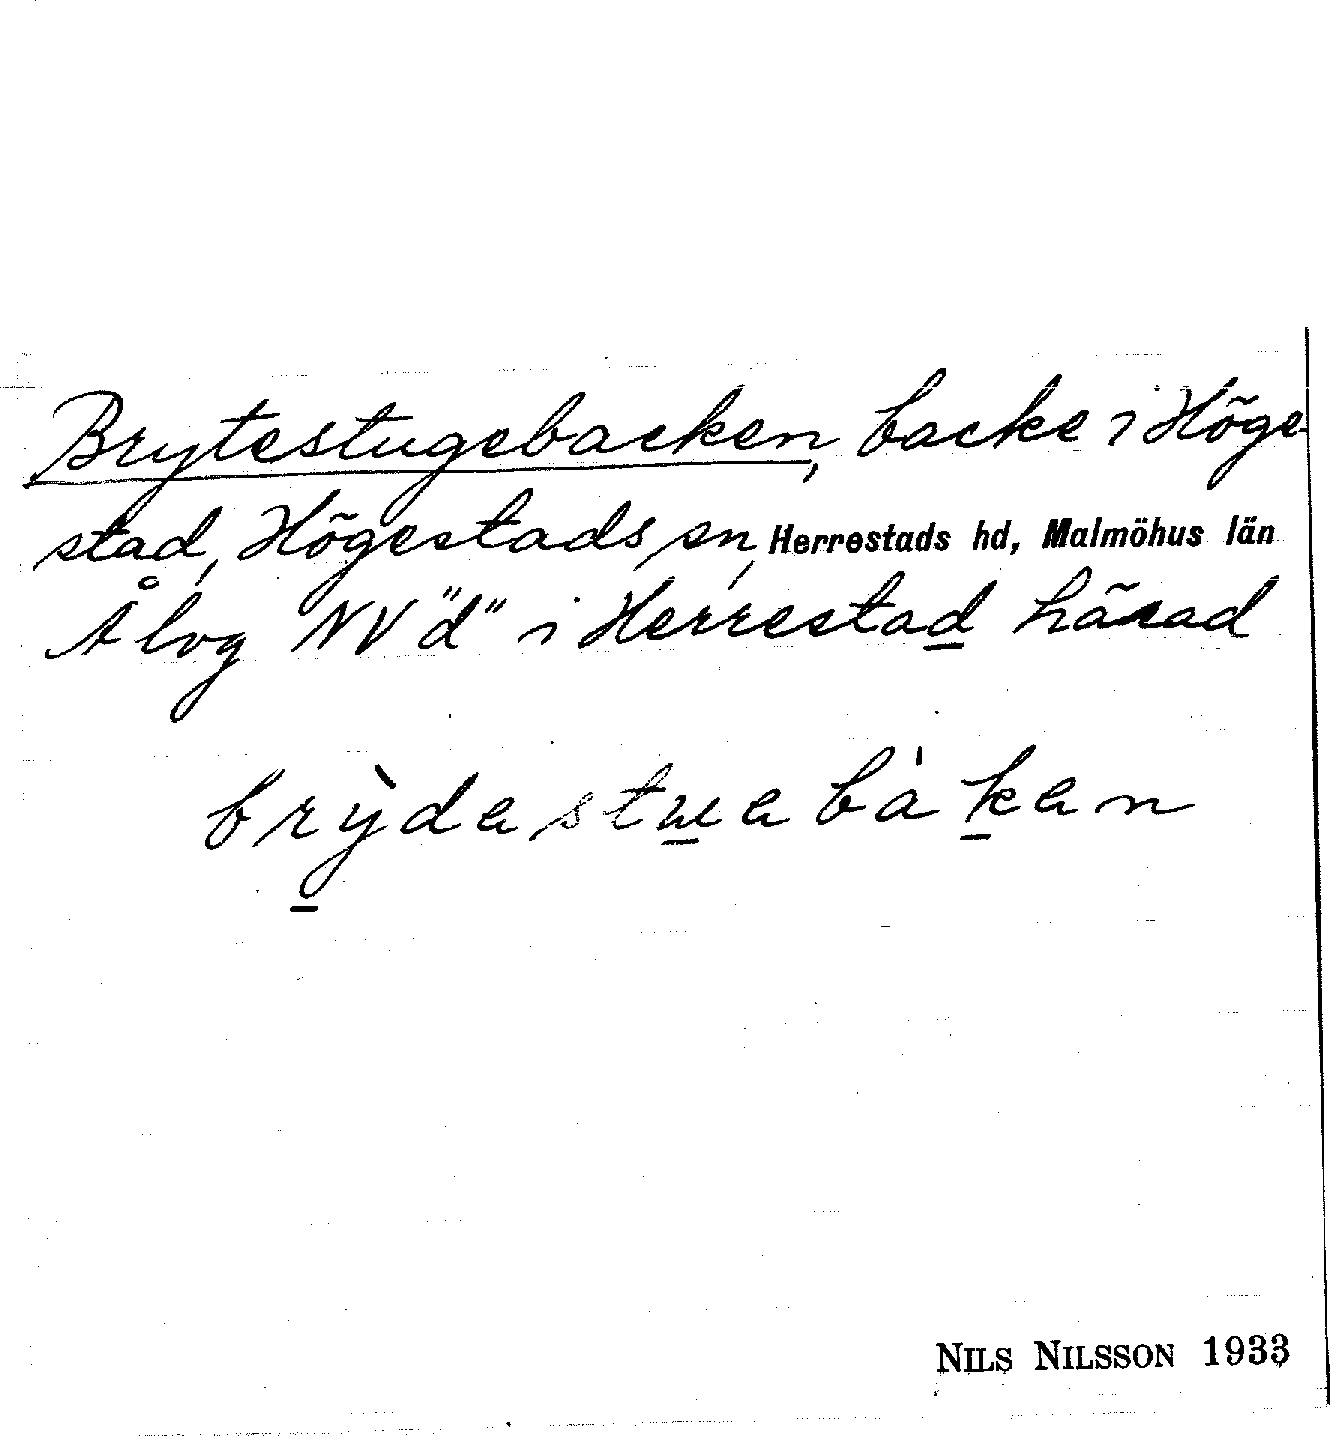 Brytestugebacken, backe i Höge-
stad, Högestads sn, Herrestads hd, Malmöhus län
Ålvg NV "d" i Herrestad härad
brỳdastuabákan
NILS NILSSON 1933